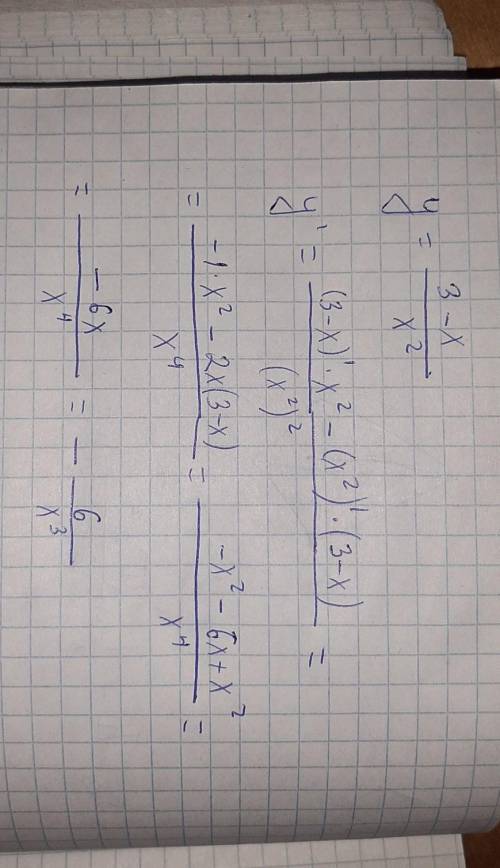 y = (3-x)/x²
y' = ((3-x)'·x² - (x²)'·(3-x))/(x²)² =
= (-1·x² - 2x(3-x))/x⁴ = (-x² - 6x + x²)/x⁴ =
= (-6x)/x⁴ = - 6/x³